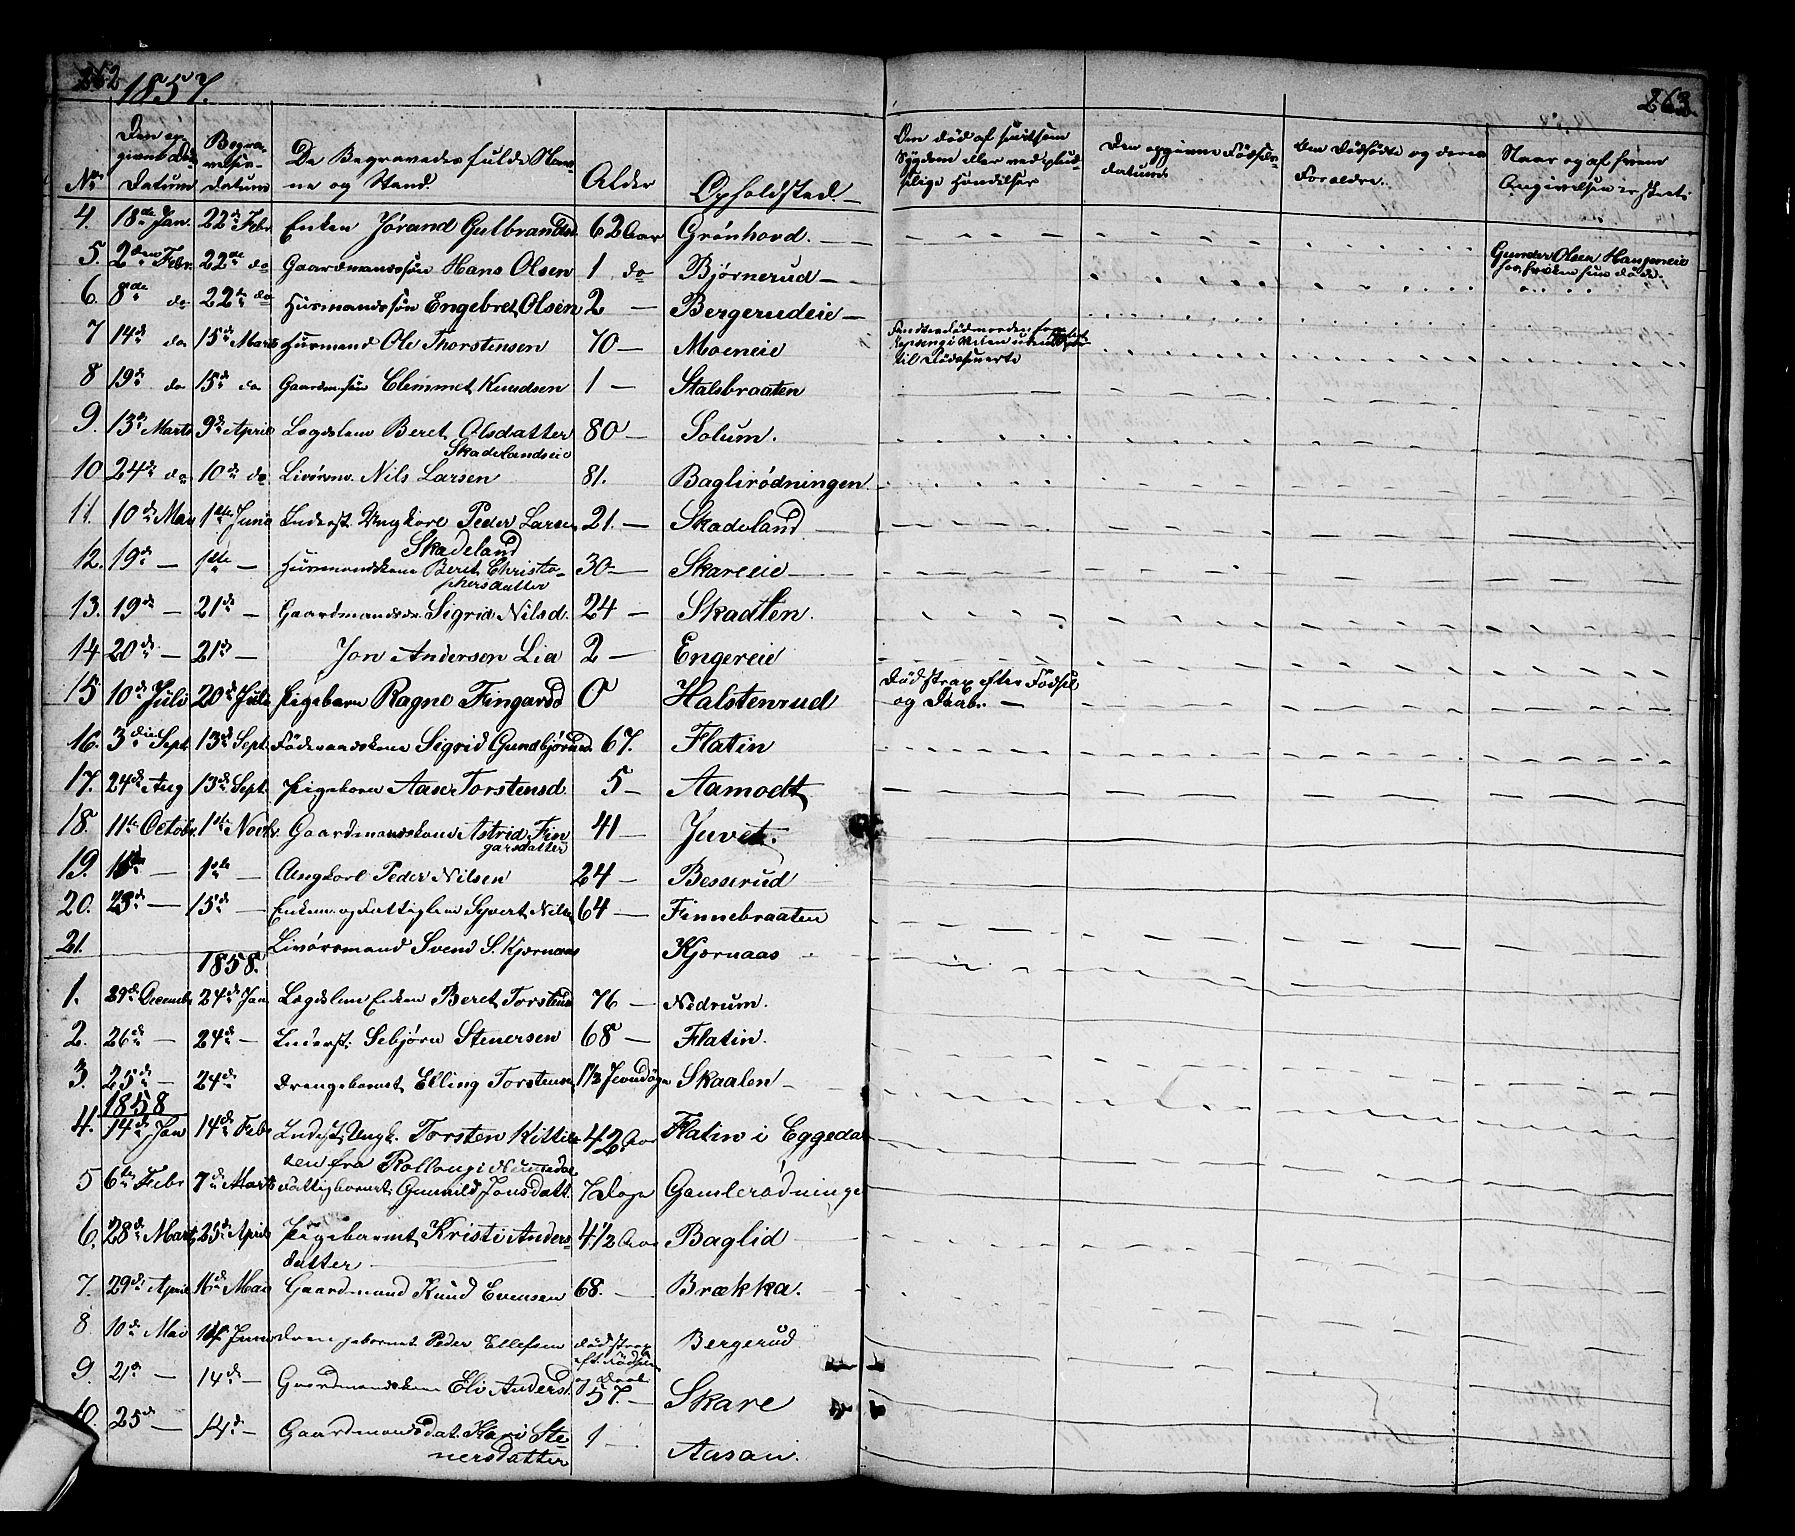 262 1857. 263
No. Den opgivne Døds Datum Begravelses- datum De Begravedes fulde Navne og Stand. Alder Opholdsted Om død af smitsom Sygdom eller ved pludselige Hændelser Den opgivne Fødsels datum Om Dødfødte og deres Forældre. Naar og af hvem Angivelsen er skeet.
4. 18de Jan. 22de Febr Enken Jørand Gulbrandsd. 62 Aar Grönhovd.
5. 2den Febr. 22de do Gaardmandssøn Hans Olsen 1 do Bjørnerud Gunder Olsen Haugeneie
6. 8de do 22de do Huusmandssøn Engebret Olsen 2 — Bergerudeie
7 14de do 15de Marts Huusmand Ole Thorstensen 70 — Moeneie
8 19de do 15de do Gaardm.søn Clemmet Knudsen 1 — Stalsbraaten
9. 13de Marts 9de April Lægdslem Beret Olsdatter Skadelandseie 80 — Solum.
10. 24de do 10de do Livörsm. Nils Larsen 81. Baglirödningen
11. 10de Mai 1ste Juni Inderst. Ungkarl Peder Larsen Skadeland 21. — Skadeland
12. 19de — 1ste — Huusmandskone Beret Christophersdatter 30 — Skareeie
13. 19de — 21de — Gaardmandsdr. Sigrid Nilsd. 24 — Skadlen.
14 20de — 21de — Jon Andersen Lia 2 — Engereie
15 10de Juli 20de Juli Pigebarn Ragne Fingarsd 0 Halstenrud Død strax efter Fødsel og Daab. —
16. 3die Sept. 13de Sept. Föderaadskone Sigrid Gundbjørnsd. 67. Flatin
17. 24de Aug 13de Sept. Pigebarn Aase Torstensd. 5 — Aamodt
18. 11te Octobr. 1ste Novbr. Gaardmandskone Astrid Fingarsdatter 41 — Juvet.
19. 1ste — Ungkarl Peder Nilsen 24 — Besserud
20. 23de — 15de — Enkem. og Fattiglem Syvert Nilsen 64 — Finnebraaten
21. Livörsmand Svend S. Kjørnaas Kjørnaas
1858.
1. 29de Decembr 24de Jan Lægdslem Enken Beret Torstensd 76 — Nedrum.
2. 26de — 24de — Inderst. Sebjörn Stenersen 68 — Flatin.
3. 25de — 24de Drengebarnet Elling Torstensen 1½ Skaalen
1858
4. 14de Jan 14de Febr Inderst, Ungk. Torsten Kittilsen fra Rollaug i Numedal 42 Aar Flatin i Eggedal
5 6te Febr 7de Marts Fattigbarnet Gunnild Jonsdatt. 7 Dage Gamlerödninge
6. 28de Marts 25de April Pigebarnet Kristi Andersdatter 4½ Aar Baglid
7. 29de April 16de Mai Gaardmand Knud Evensen 68. — Brækka.
8. 10de Mai 14de Juni Drengebarnet Peder Ellefsen død strax eft. Fødsel og Daab. Bergerud
9. 21de — 14de — Gaardmandskone Eli Andersd. 57. — Skare
10. 25de — 14de — Gaardmandsdat. Kari Stenersdatter 1 — Aasan.